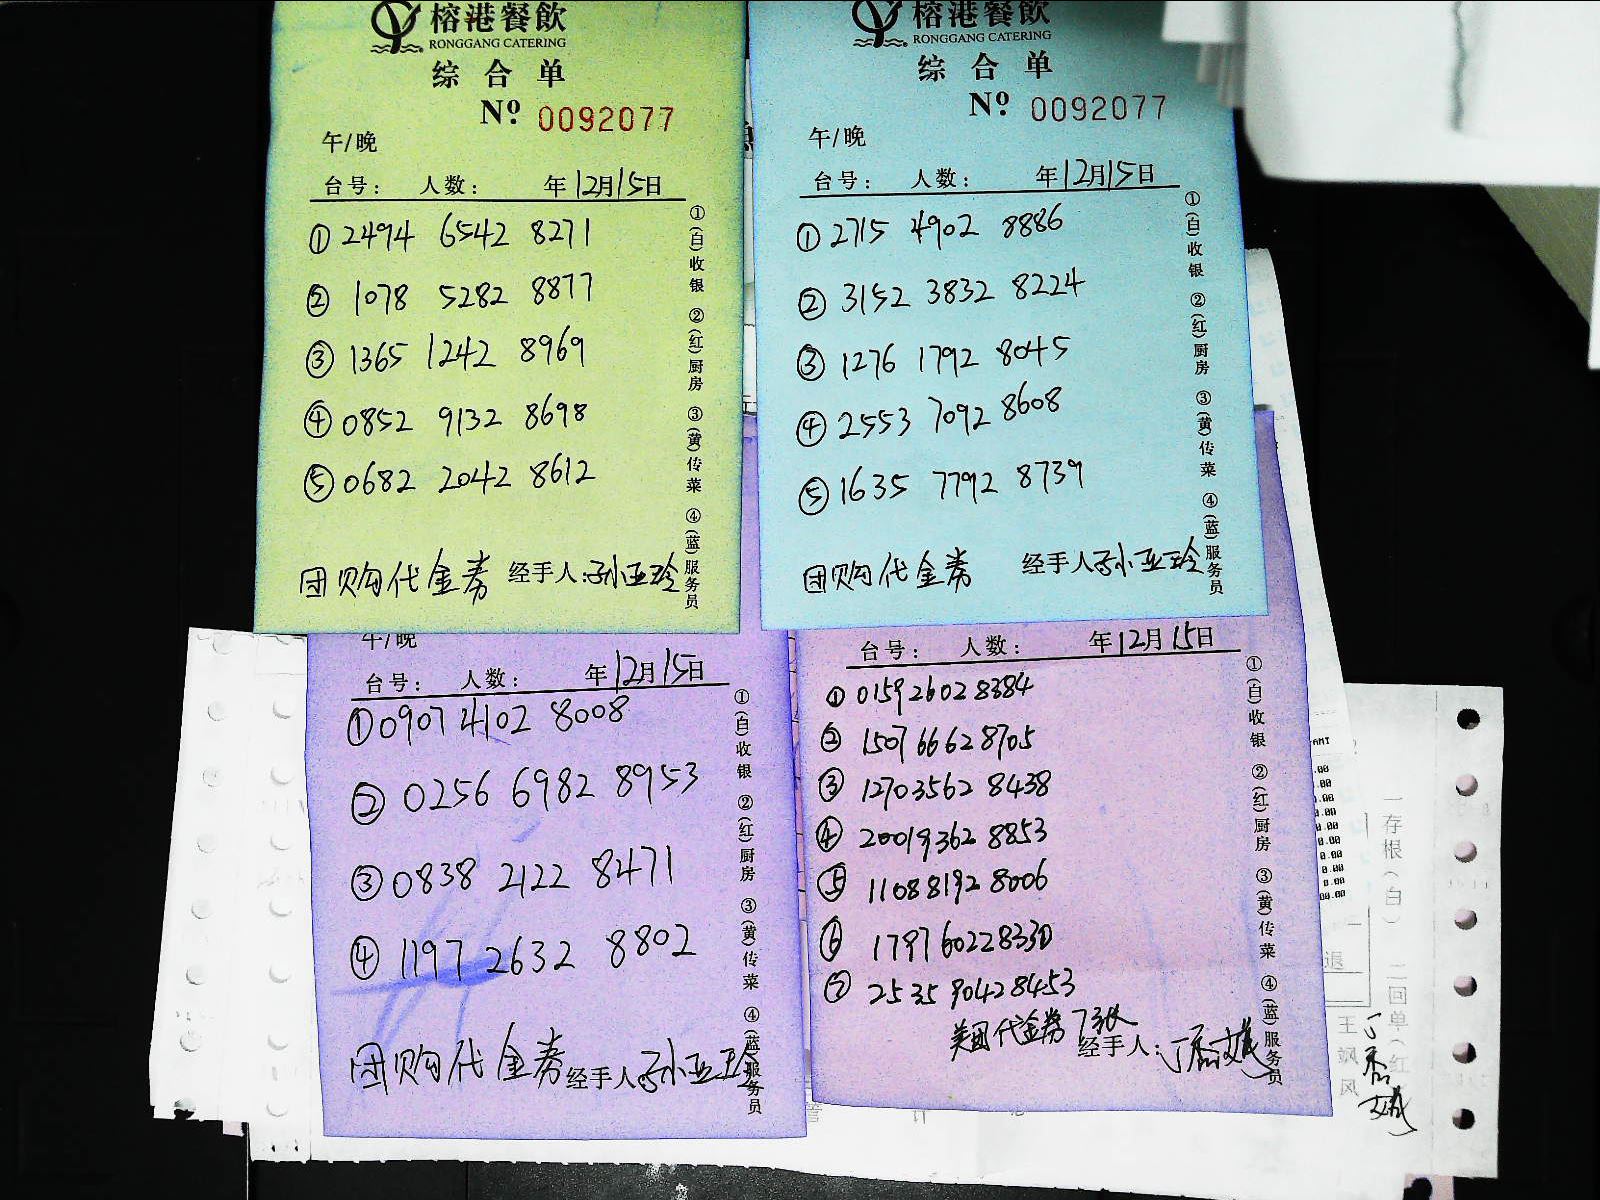 榕港餐飲
RONGGANG CATERING
综合单
Nº 0092077
午/晚
台号： 人数： 年12月15日
①2494 6542 8271
② 1078 5282 8877
③ 1365 1242 8969
④ 0852 9132 8698
⑤ 0682 2042 8612
团购代金券 经手人:孙亚玲
①(白)收银 ②(红)厨房 ③(黄)传菜 ④(蓝)服务员
榕港餐飲
RONGGANG CATERING
综合单
Nº 0092077
午/晚
台号： 人数： 年12月15日
① 2715 4902 8886
② 3152 3832 8224
③ 1276 1792 8045
④ 2553 7092 8608
⑤ 1635 7792 8739
团购代金券 经手人孙亚玲
①(白)收银 ②(红)厨房 ③(黄)传菜 ④(蓝)服务员
午/晚
台号： 人数： 年12月15日
①0907 4102 8008
② 0256 6982 8953
③ 0838 2122 8471
④ 1197 2632 8802
团购代金券 经手人孙亚玲
①(白)收银 ②(红)厨房 ③(黄)传菜 ④(蓝)服务员
台号： 人数： 年12月15日
① 0159 2602 8384
② 1507 6662 8705
③ 1270 3562 8438
④ 2001 9362 8853
⑤ 1108 8192 8006
⑥ 1797 6022 8330
⑦ 2535 9042 8453
美团代金券7张
经手人：
①(白)收银 ②(红)厨房 ③(黄)传菜 ④(蓝)服务员
一存根(白) 二回单(红
王飒风
退